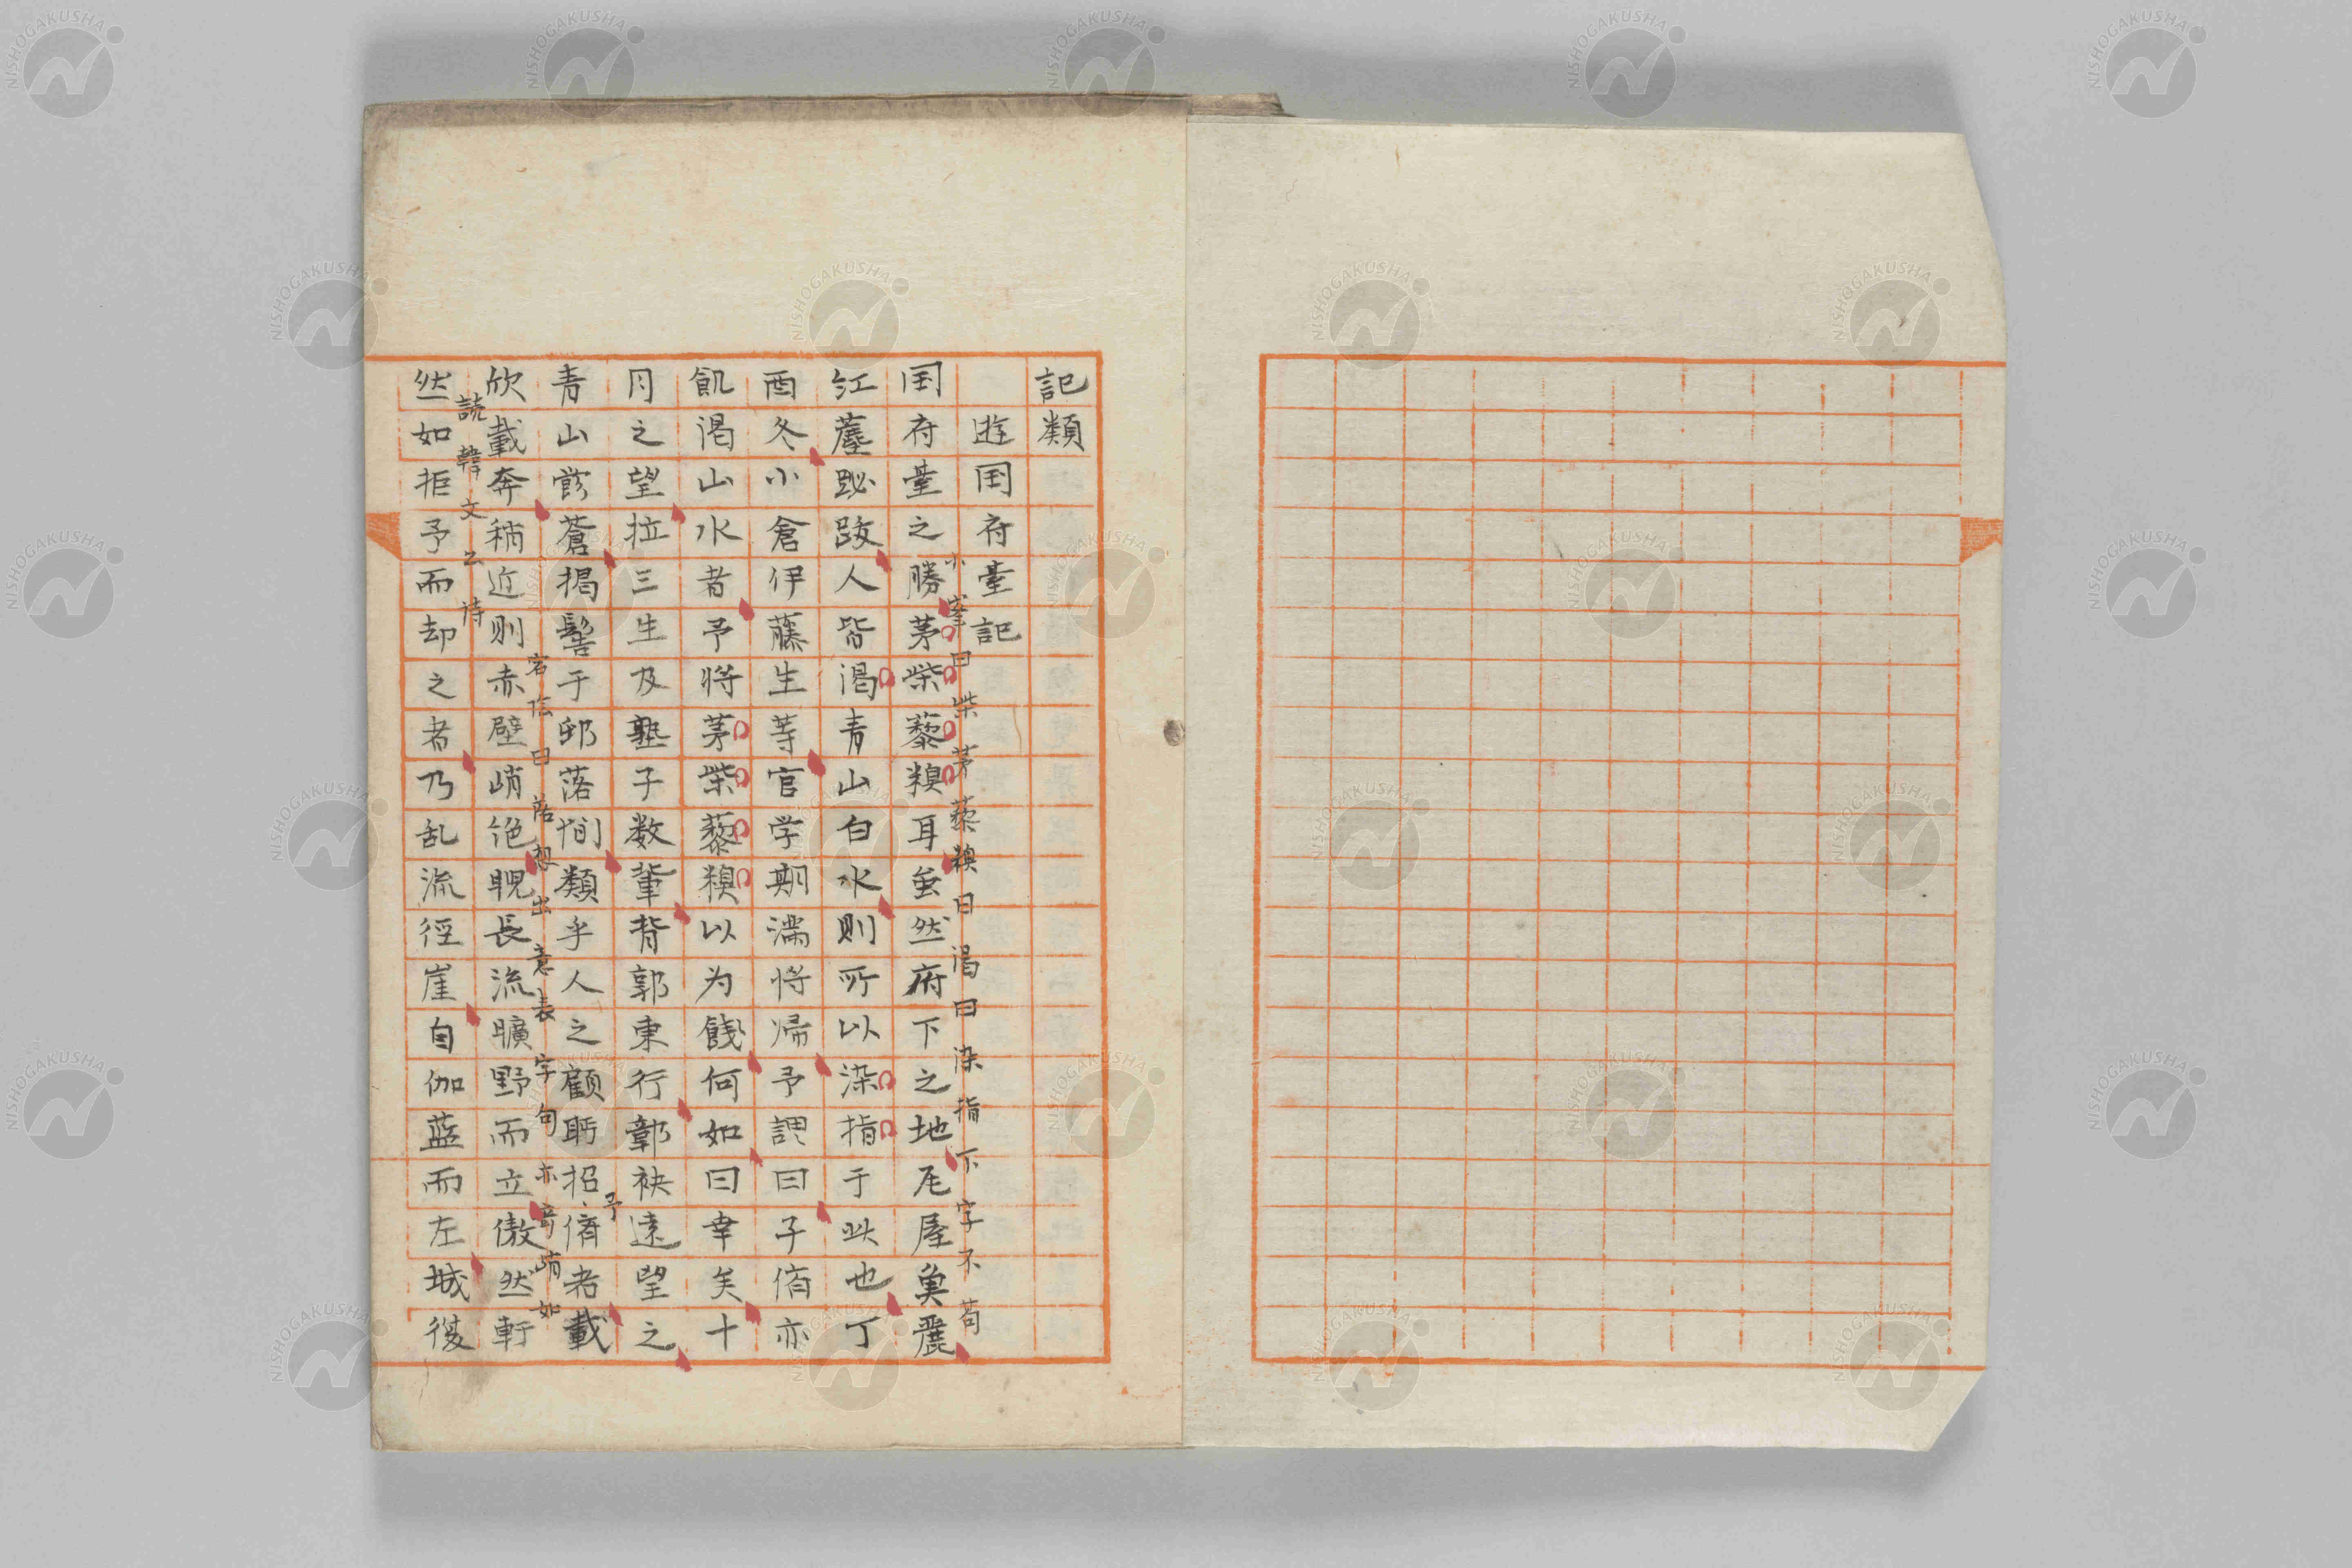 記類
遊国府臺記
小峯曰柴茅藜糗曰渇曰染指下字不苟
国府臺之勝茅柴藜糗耳虽然府下之地尾屋奥麗
江蘯跛人皆渇青山白水則所以染指于此也丁
酉冬小倉伊藤生等官学期満将帰予謂曰子儕亦
飢渇山水者予将茅柴藜糗以为餞何如曰幸矣十
月之望拉三生及塾子数輩背郭東行鄣袂遠望之
予
青山蒼掲髻于邨落間類乎人之顧眄招儕者載
宕信曰落想出意表字句亦奇峭如
欣載奔稍近則赤壁峭絶睨長流曠野而立傲然軒
読韓文公诗
然如拒予而却之者乃乱流径崖自伽藍而左城復
NISHOGAKUSHA